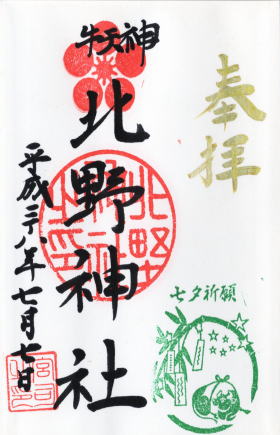 奉拝
牛天神
北野神社
平成二十八年七月七日
七夕祈願